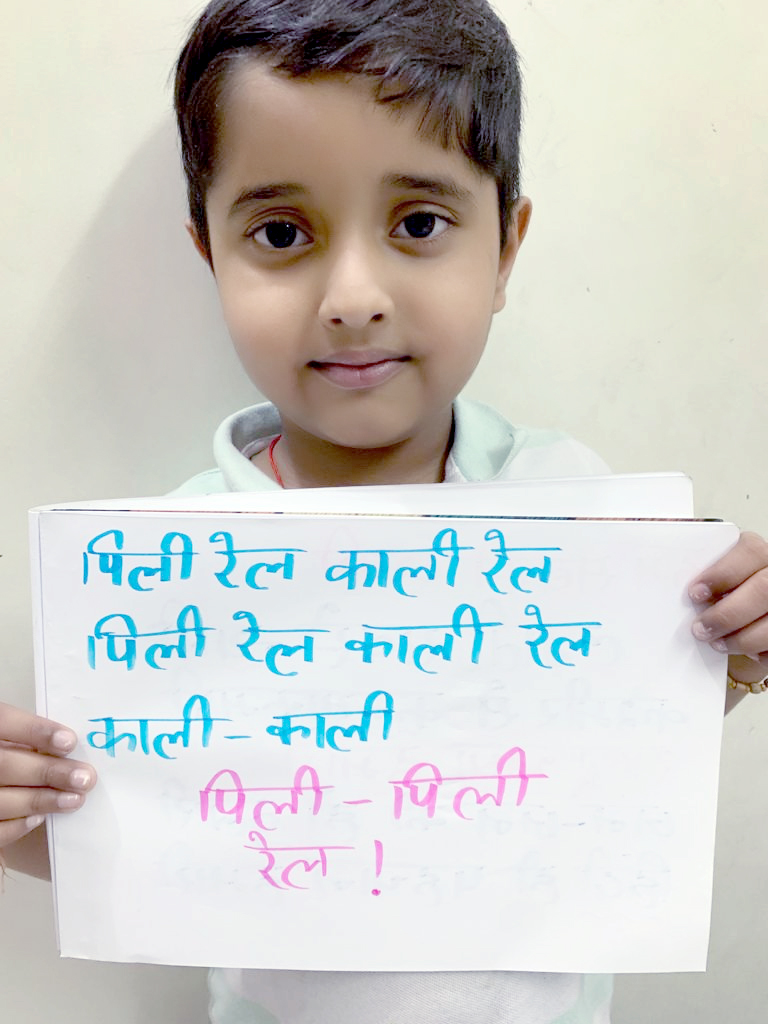 पिली रेल काली रेल
पिली रेल काली रेल
काली - काली
पिली - पिली
रेल !